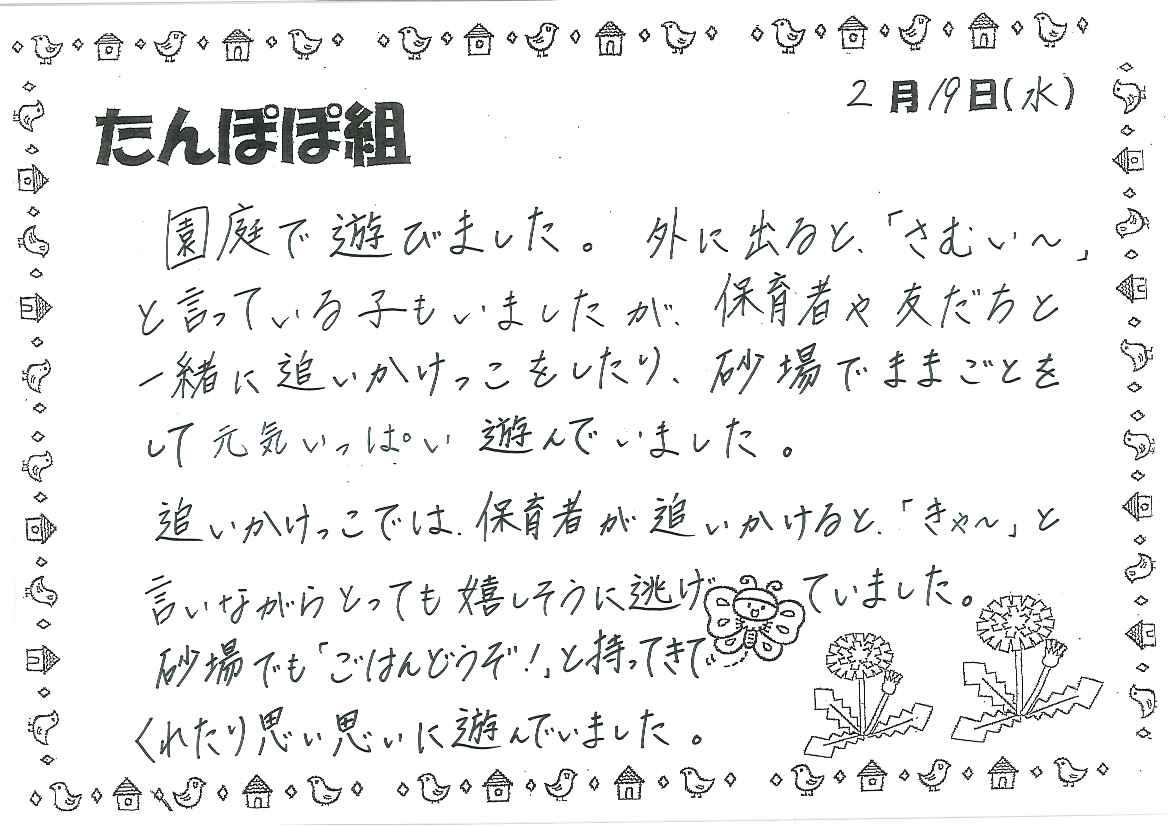 2月19日(水)
たんぽぽ組
園庭で遊びました。外に出ると、「さむい〜」
と言っている子もいましたが、保育者や友だちと
一緒に追いかけっこをしたり、砂場でままごとを
して元気いっぱい遊んでいました。
追いかけっこでは、保育者が追いかけると、「きゃ〜」と
言いながらとっても嬉しそうに逃げていました。
砂場でも「ごはんどうぞ!」と持ってきて
くれたり思い思いに遊んでいました。